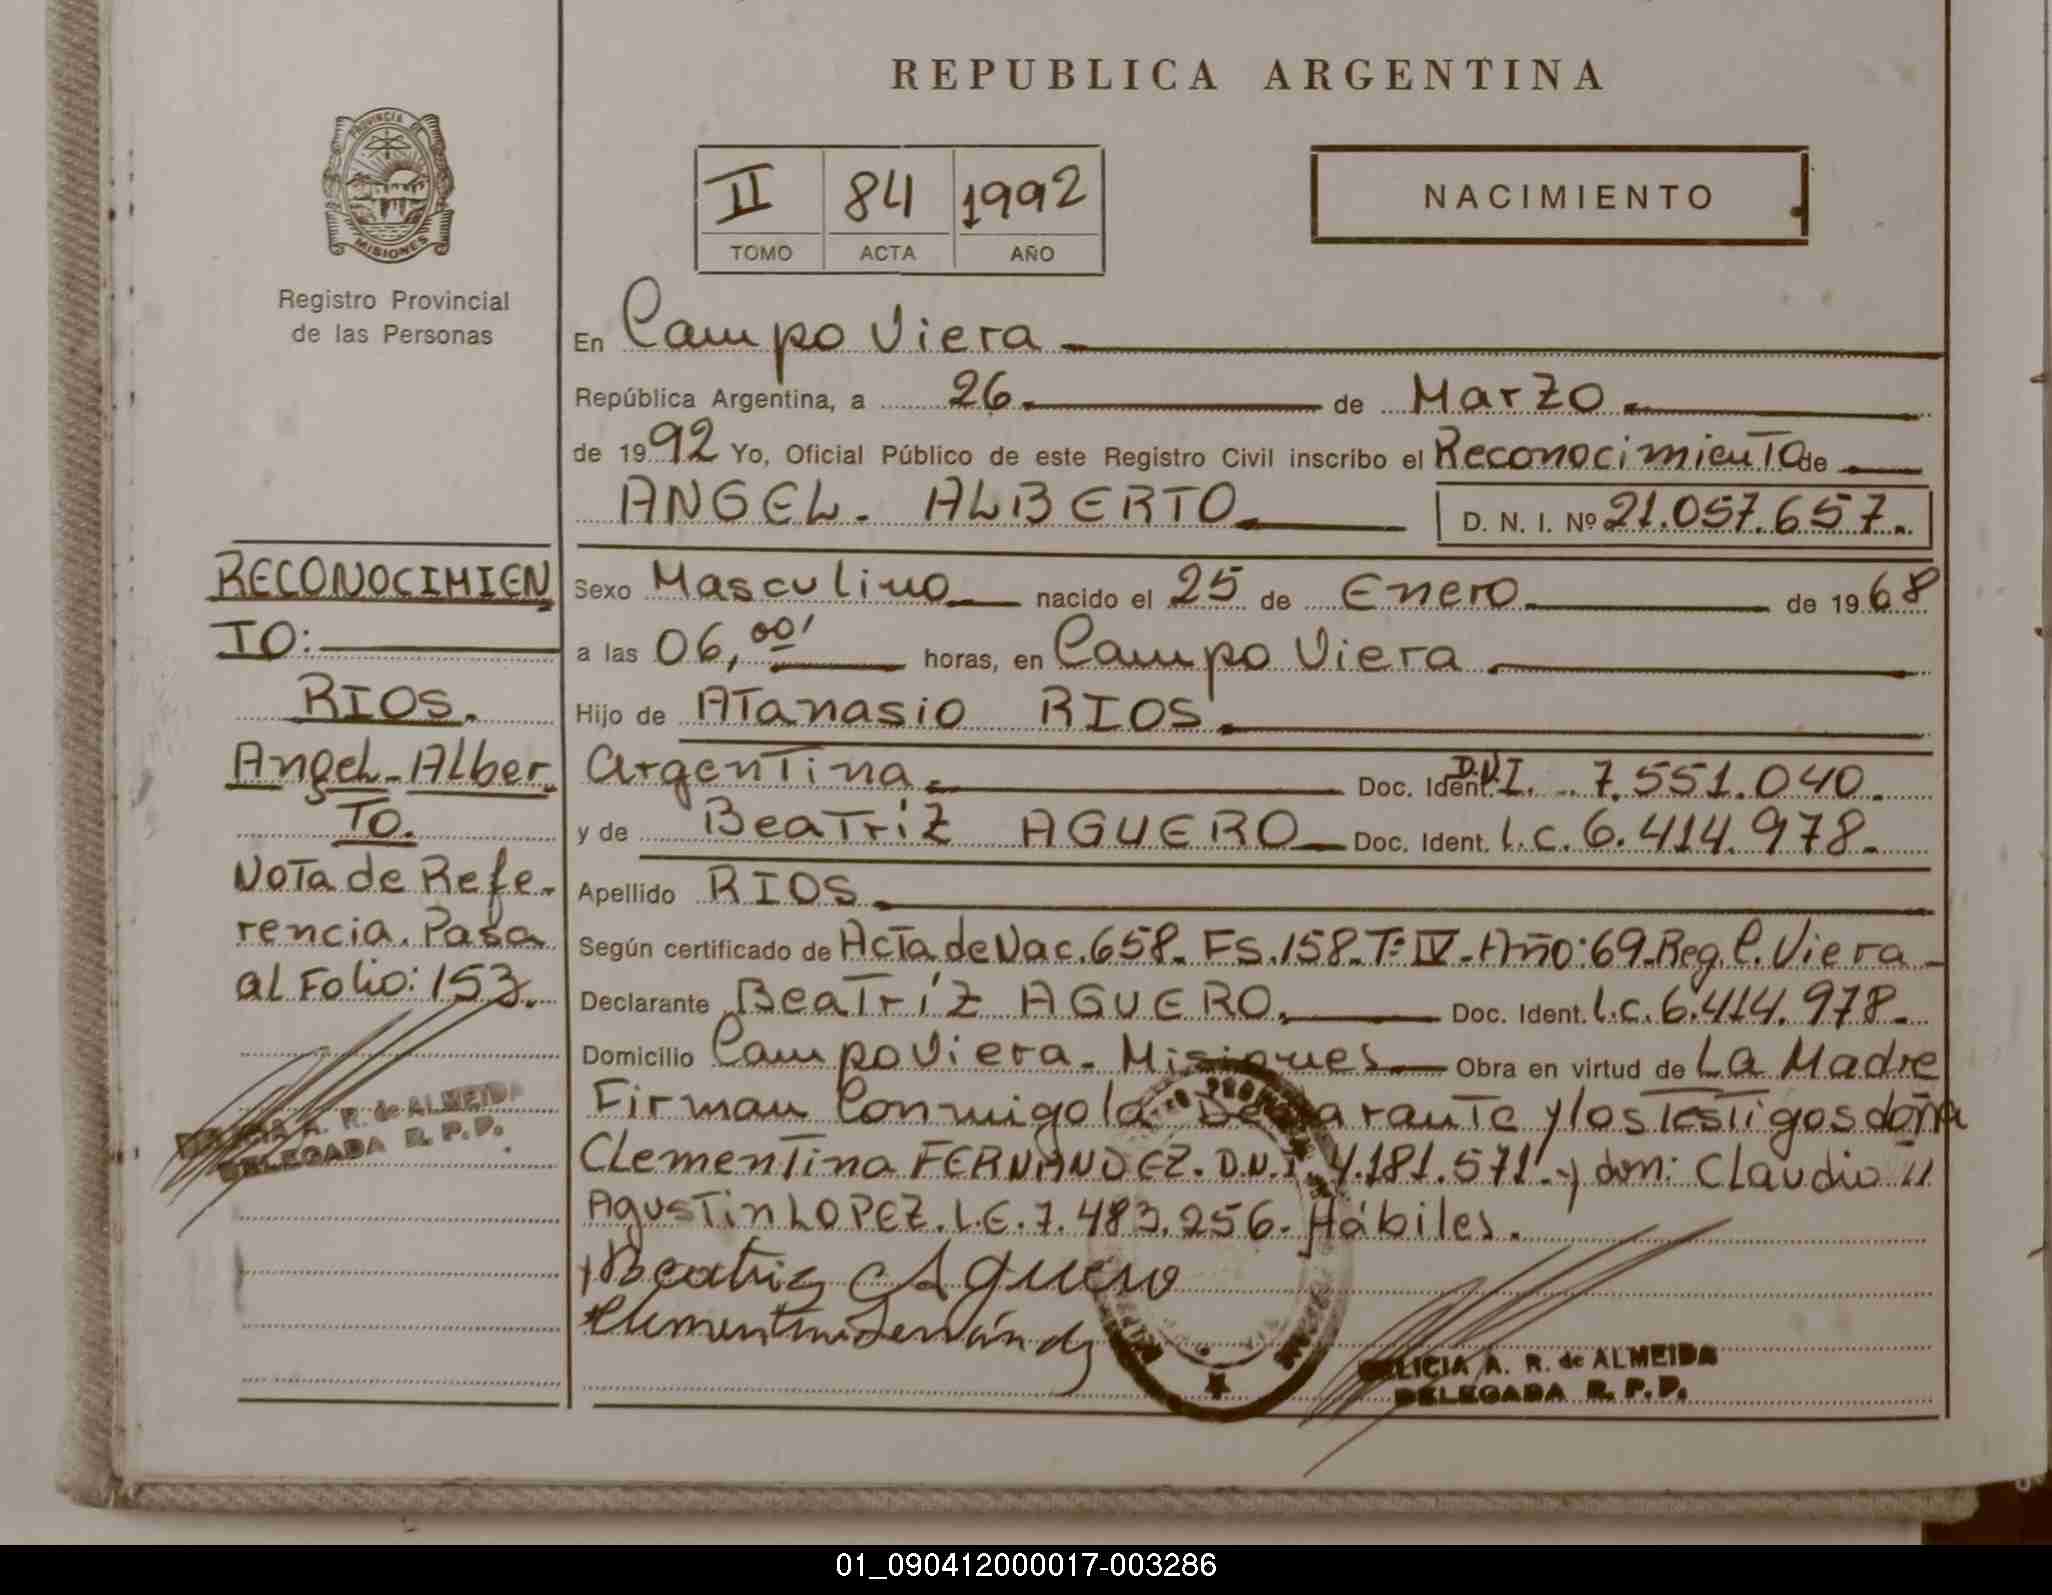 REPUBLICA ARGENTINA
PROVINCIA DE
MISIONES
Registro Provincial
de las Personas
II 84 1992
TOMO ACTA AÑO
NACIMIENTO
En Campo Viera
República Argentina, a 26 de Marzo
de 1992 Yo, Oficial Público de este Registro Civil inscribo el Reconocimiento de
ANGEL. ALBERTO D. N. I. Nº 21.057.657.
Sexo Masculino nacido el 25 de Enero de 1968
a las 06,00' horas, en Campo Viera
Hijo de Atanasio RIOS.
Argentina. Doc. Ident. D.N.I. 7.551.040.
y de Beatríz AGUERO Doc. Ident. L.C. 6.414.978.
Apellido RIOS
Según certificado de Acta de Nac. 658. Fs. 158. Tº IV. Año: 69. Reg. C. Viera
Declarante Beatríz AGUERO. Doc. Ident. L.C. 6.414.978.
Domicilio Campo Viera. Misiones Obra en virtud de La Madre
Firman Conmigo la Declarante y los Testigos doña
Clementina FERNANDEZ. D.N.I. 4.181.571. y don: Claudio
Agustin LOPEZ. L.E. 7.483.256. Hábiles.
Beatriz Aguero
FELICIA A. R. de ALMEIDA
DELEGADA R. P. P.
RECONOCIMIEN
TO:
RIOS.
Angel Alber
To.
Nota de Refe-
rencia. Pasa
al Folio: 153.
FELICIA A. R. de ALMEIDA
DELEGADA R. P. P.
01_090412000017-003286